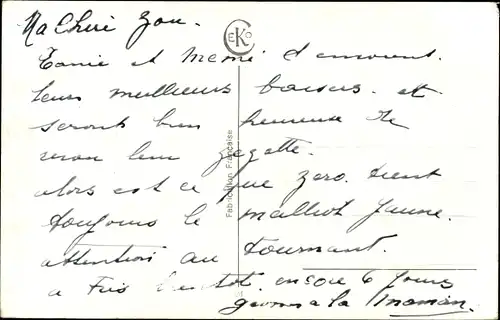 Ma Cheri Zou.
CEKO
Tonie et Mémé t'envoient
leurs meilleurs baisers. et
seront bien heureuse de
revoir leur zezette.
alors est ce que zero. tient
toujours le maillot jaune.
attention au tournant.
a tres bientot. encore 6 jours
a la maman.
Fabrication Française